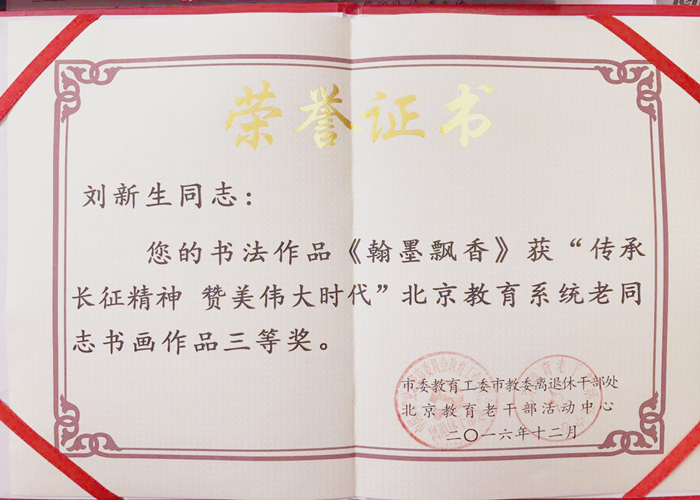 荣誉证书
刘新生同志:
您的书法作品《翰墨飘香》获“传承
长征精神 赞美伟大时代”北京教育系统老同
志书画作品三等奖。
市委教育工委市教委离退休干部处
北京教育老干部活动中心
二〇一六年十二月